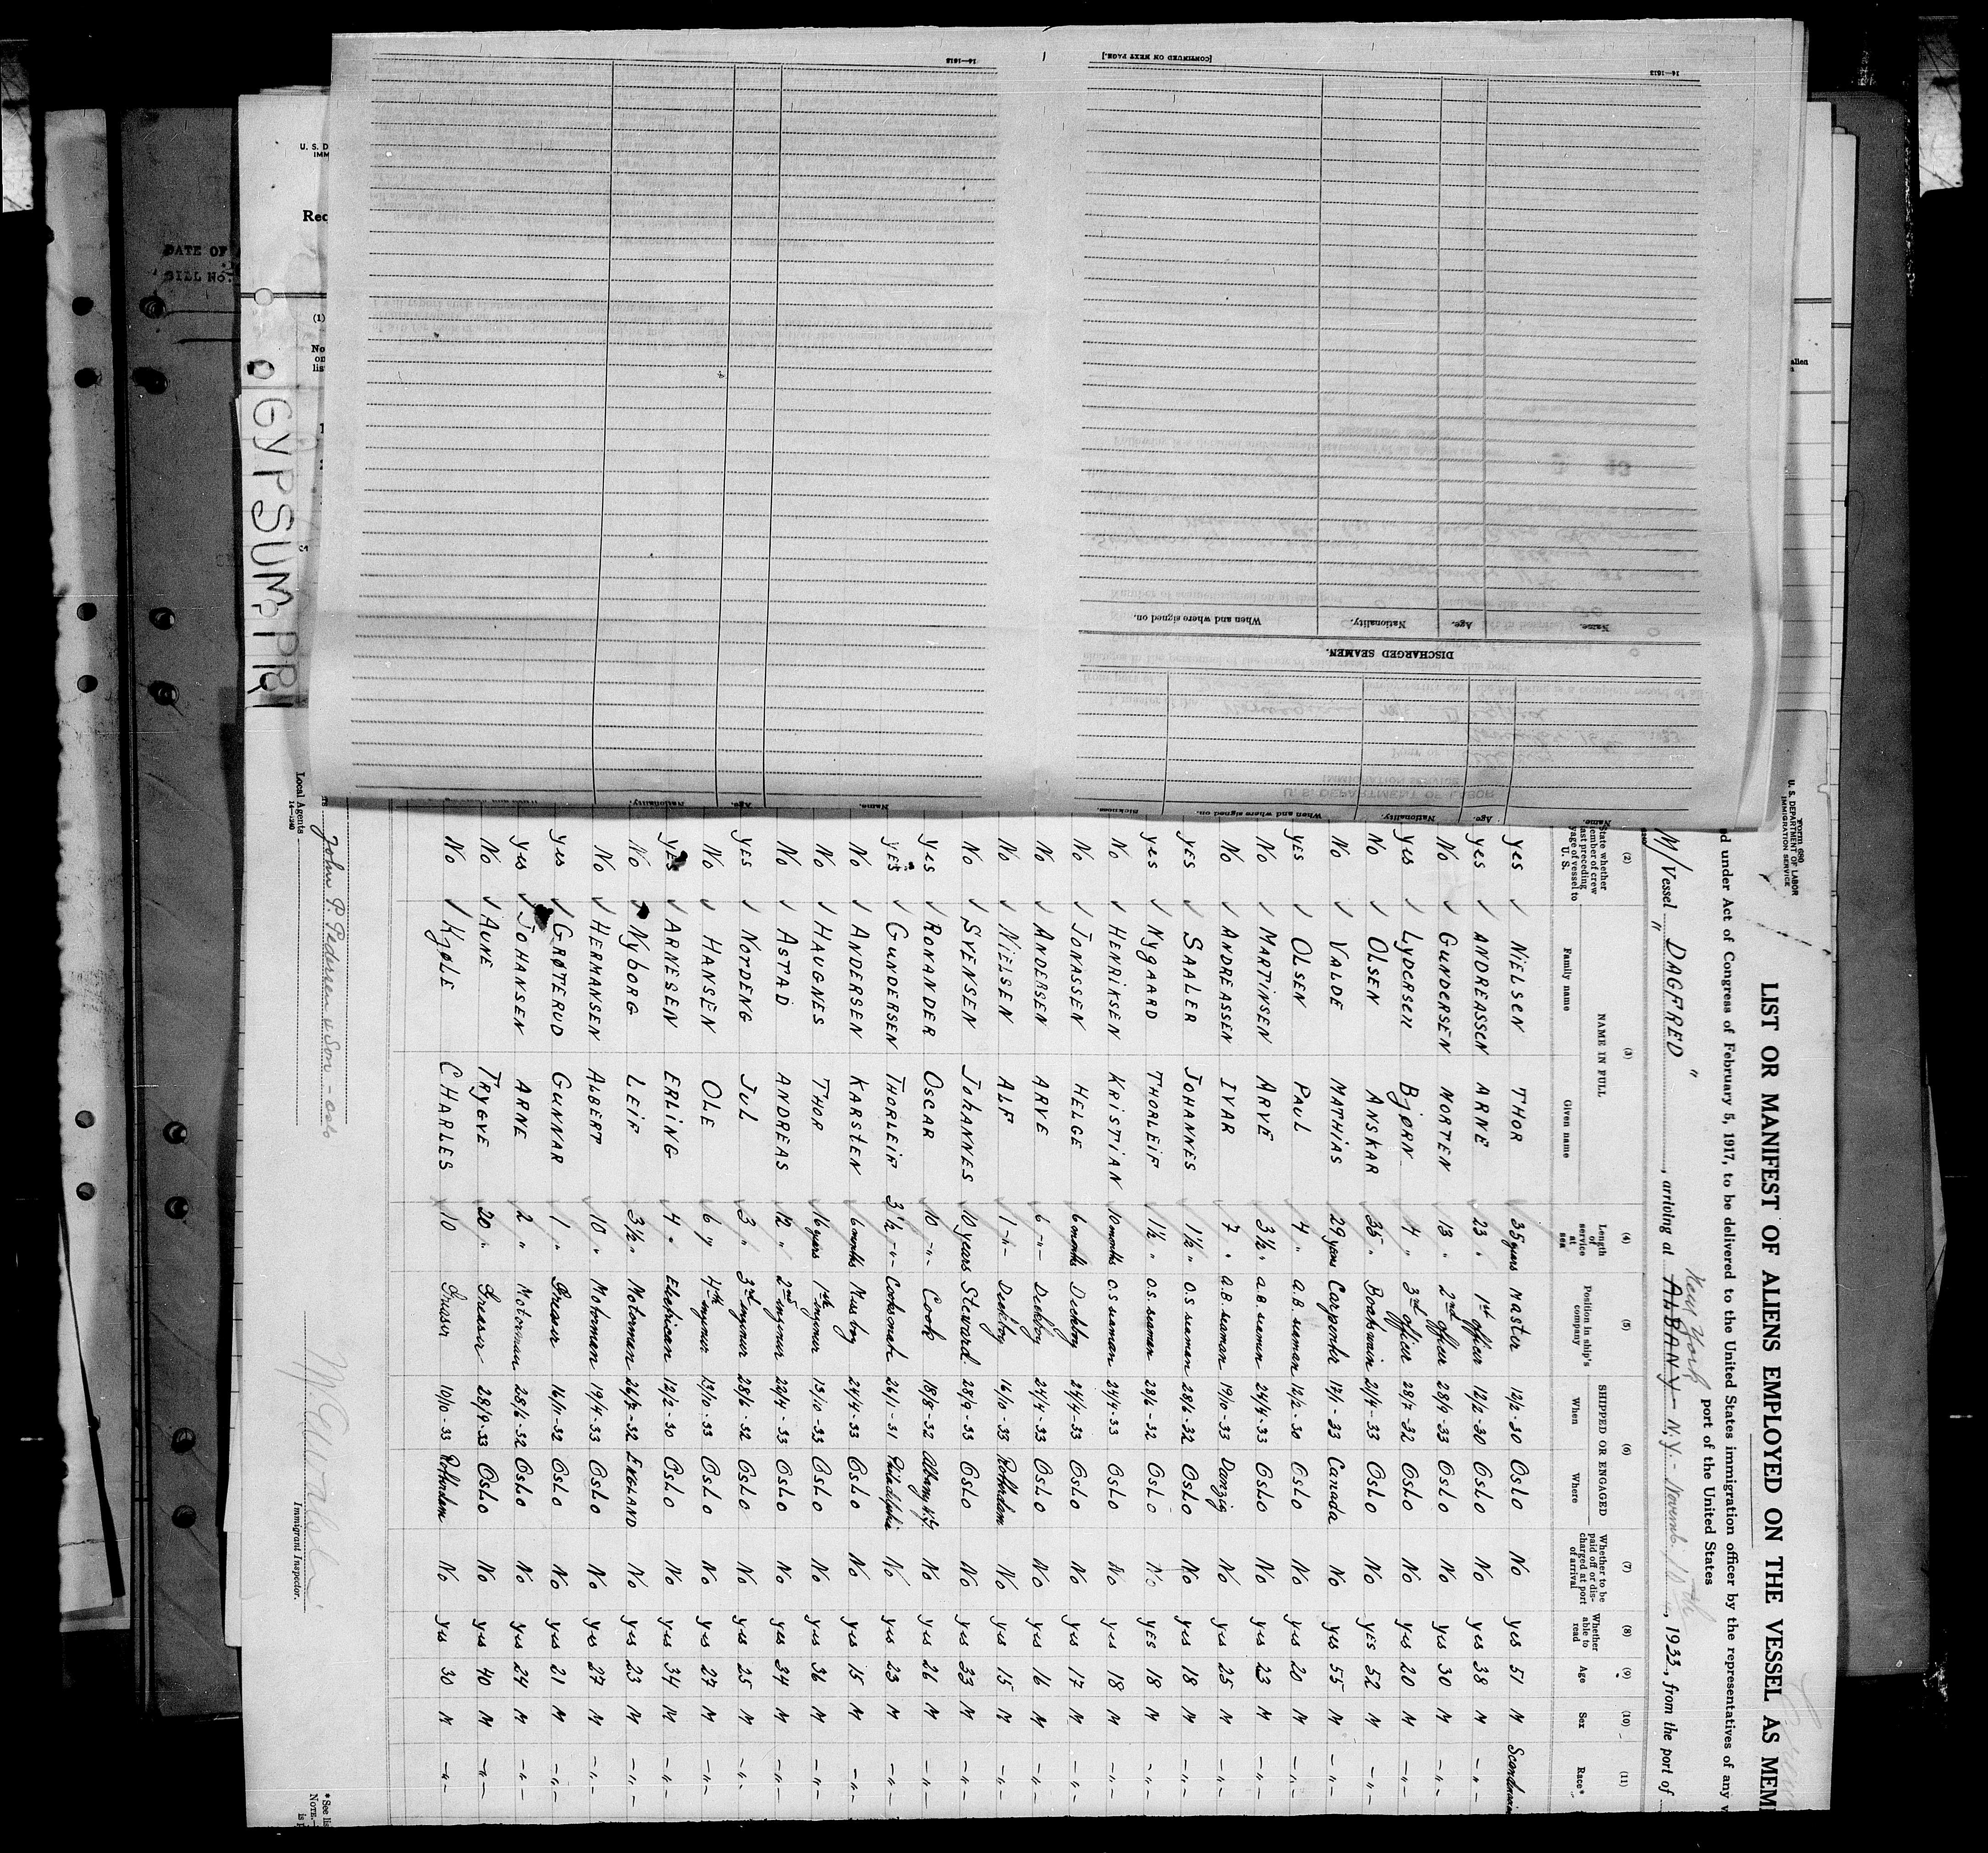 Form 680
U. S. DEPARTMENT OF LABOR
IMMIGRATION SERVICE
LIST OR MANIFEST OF ALIENS EMPLOYED ON THE VESSEL AS MEM
ed under Act of Congress of February 5, 1917, to be delivered to the United States immigration officer by the representatives of any v
port of the United States
New York
M/Vessel " DAGFRED " , arriving at ALBANY N.Y. Novemb. 15th, 1933, from the port of
(2) (3) (4) (5) (6) (7) (8) (9) (10) (11)
State whether member of crew last preceding voyage of vessel to U. S.
NAME IN FULL
Family name Given name
Length of service at sea
Position in ship's company
SHIPPED OR ENGAGED
When Where
Whether to be paid off or discharged at port of arrival
Whether able to read
Age Sex Race*
yes ✓ NIELSEN THOR 35 years Master 12/2-30 OSLO No yes 51 M
yes ✓ ANDREASSEN ARNE 23 " 1st officer 12/2-30 OSLO No yes 38 M -"-
No ✓ GUNDERSEN MORTEN 13 " 2nd officer 28/9-33 OSLO No yes 30 M -"-
yes ✓ LYDERSEN BJØRN 4 " 3rd officer 28/7-32 OSLO No yes 20 M -"-
No ✓ OLSEN ANSKAR 35 " Boatswain 21/4-33 OSLO No yes 52 M -"-
No ✓ VALDE MATHIAS 29 years Carpenter 17/1-33 Canada No yes 55 M -"-
yes ✓ OLSEN PAUL 4 " A.B. seaman 12/2-30 OSLO No yes 20 M -"-
No ✓ MARTINSEN ARVE 3½ " A.B. seaman 24/4-33 OSLO No yes 23 M -"-
No ✓ ANDREASSEN IVAR 7 " A.B. seaman 19/10-33 Danzig No yes 25 M -"-
yes ✓ SAALER JOHANNES 1½ " O.S. seaman 28/6-32 OSLO No yes 18 M -"-
yes ✓ NYGAARD THORLEIF 1½ " O.S. seaman 28/6-32 OSLO No yes 18 M -"-
No ✓ HENRIKSEN KRISTIAN 10 months O.S. seaman 24/4-33 OSLO No yes 18 M -"-
No ✓ JONASSEN HELGE 6 months Deckboy 24/4-33 OSLO No yes 17 M -"-
No ✓ ANDERSEN ARVE 6 -"- Deckboy 24/4-33 OSLO No yes 16 M -"-
No ✓ NIELSEN ALF 1 -"- Deckboy 16/10-33 Rotterdam No yes 15 M -"-
No ✓ SVENSEN JOHANNES 10 years Steward 28/9-33 OSLO No yes 33 M -"-
yes ✓ RONANDER OSCAR 10 -"- Cook 18/8-32 Albany N.Y. No yes 26 M -"-
yes ✓ GUNDERSEN THORLEIF 3½ -"- Cooksmate 26/1-31 Philadelphia No yes 23 M -"-
No ✓ ANDERSEN KARSTEN 6 months Mess boy 24/4-33 OSLO No yes 15 M -"-
No ✓ HAUGNES THOR 16 years 1st enginer 13/10-33 OSLO No yes 36 M -"-
No ✓ ASTAD ANDREAS 12 " 2nd enginer 22/4-33 OSLO No yes 34 M -"-
yes ✓ NORDENG JUL 3 " 3rd enginer 28/6-32 OSLO No yes 25 M -"-
No ✓ HANSEN OLE 6 " 4th enginer 13/10-33 OSLO No yes 27 M -"-
yes ✓ ARNESEN ERLING 4 " Electrican 12/2-30 OSLO No yes 34 M -"-
No NYBORG LEIF 3½ " Motorman 26/7-32 ENGLAND No yes 23 M -"-
No ✓ HERMANSEN ALBERT 10 " Motorman 19/4-33 OSLO No yes 27 M -"-
yes ✓ GRØTERUD GUNNAR 1 " Greaser 16/11-32 OSLO No yes 21 M -"-
yes ✓ JOHANSEN ARNE 2 " Motorman 28/6-32 OSLO No yes 24 M -"-
No ✓ AUNE TRYGVE 20 " Greaser 28/9-33 OSLO No yes 40 M -"-
No ✓ KJØLE CHARLES 10 Greaser 10/10-33 Rotterdam No yes 30 M -"-
John P. Pedersen & Son - Oslo
Local Agents
14—1240
Immigrant Inspector.
* See lis
NOTE.—
is p
[CONTINUED ON NEXT PAGE.]
14—1613
14—1613
DISCHARGED SEAMEN.
Name. Age. Nationality. When and where signed on.
Name. Age. Nationality. When and where signed on. Sickness.
Name. Age. Nationality.
U. S. DEPARTMENT OF LABOR
IMMIGRATION SERVICE
DATE OF
BILL No.
U. S. D
IMM
Rec
(1)
No
on
lis
GYPSUM PR
alien